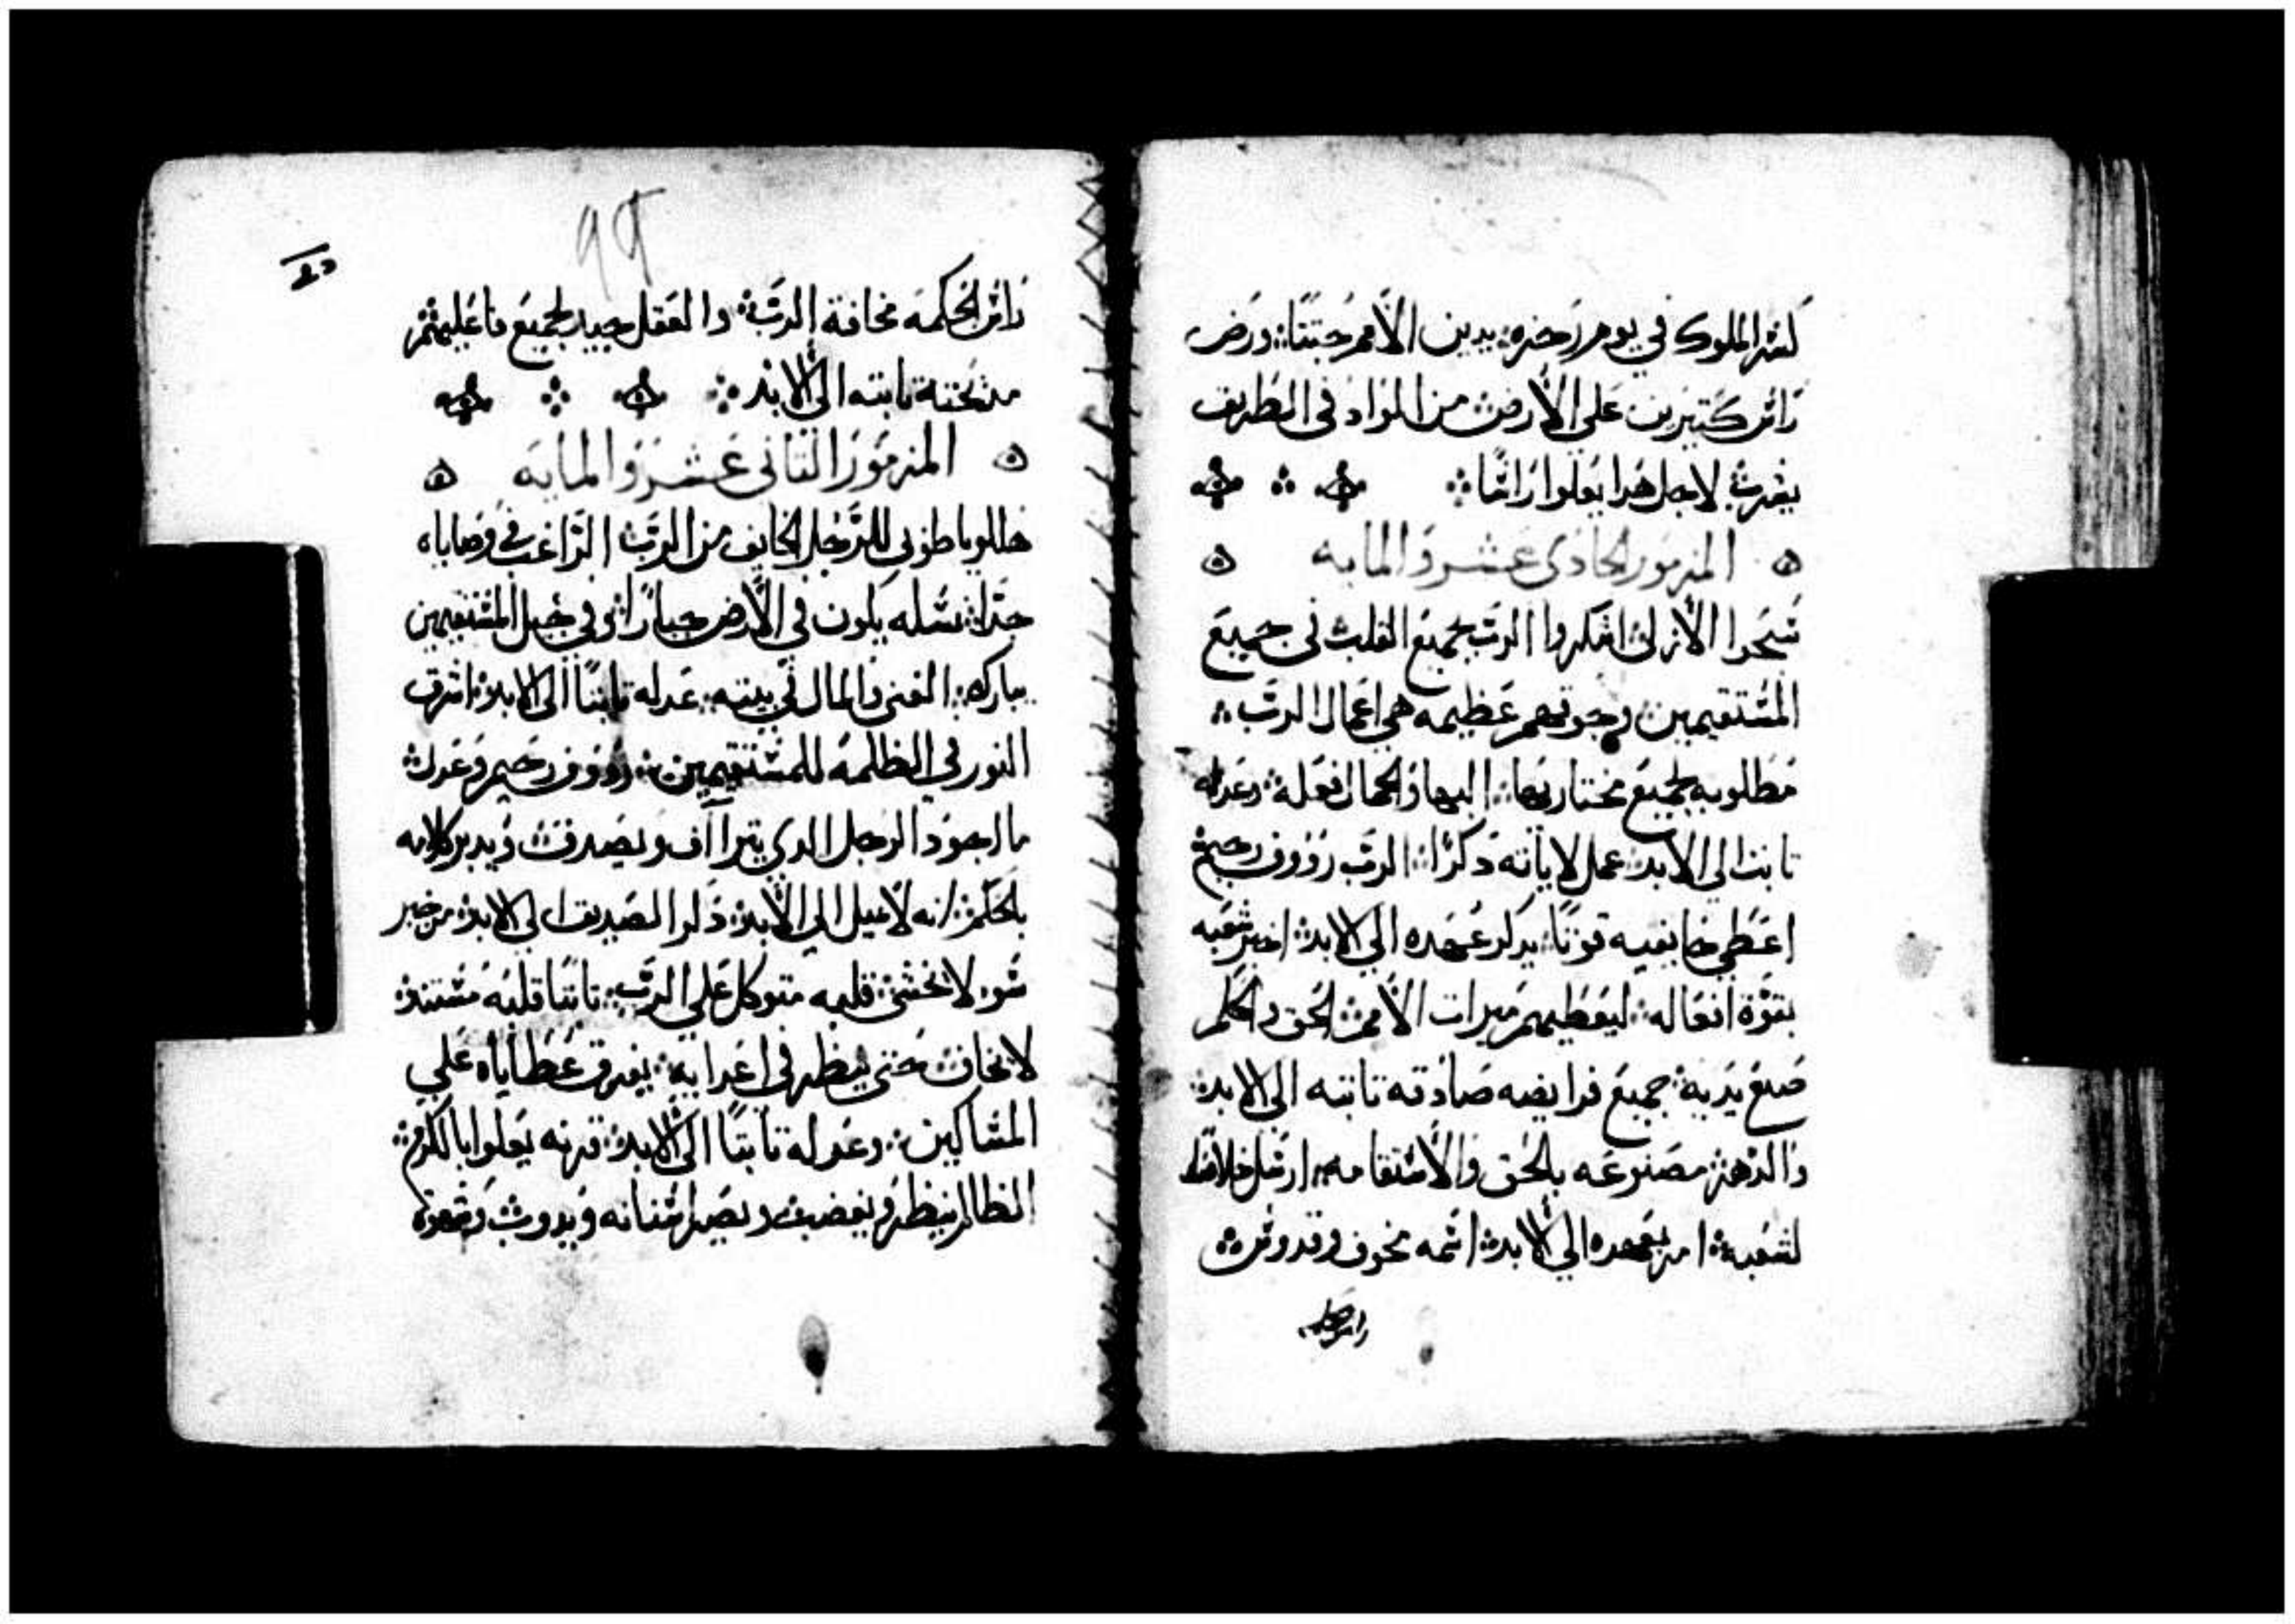 كسر الملوك في يوم رجزه يدين الأمم جتتًا ورض
رائس كتيرين على الأرض من الواد في الطريف
يشرب لاجل هدا يعلوا راسًا
المزمور الحادى عشر والمايه
نسجدا الأزلى اشكروا الرب بجميع القلب في جميع
المستقيمين وجوتهم عظيمه هي اعمال الرب
مطلوبه لجميع مختاريها البها والجمال فعله وعدله
تابت الى الابد عمل لاياته دكرًا الرب رووف رحيم
اعطي خايفيه قوتًا يدكر عهده الي الابد اخبر شعبه
بقوة افعاله ليعطيهم ميرات الأمم الحق والحكم
صنع يديه جميع فرايضه صادقه تابته الى الابد
والدهر مصنوعه بالحق والاستقامه ارسل خلاصًا
لشعبه امر بعهده الي الابد اسمه مخوف وقدوس
راس الحكمه
راس الحكمه مخافة الرب والعقل جيد لجميع فاعليه ثم
مدبحته تابته الى الابد
المزمور التانى عشر والمايه
هللويا طوبى للرجل الخايف من الرب الراغب في وصاياه
جدًا نسله يكون في الأرض جبارًا في جيل المستقيمين
يباركه الغنى والمال في بيته عدله تابتًا الى الابد اشرق
النور في الظلمه للمستقيمين رووف رحيم وعدل
ما اجود الرجل الدي يتراأف ويصدف ويدبر كلامه
بالحكم انه لا يميل الى الأبد دكر الصديق الى الابد من خبر
سو لا يخشى قلبه متوكل على الرب تابتًا قلبه مستند
لا يخاف حتى ينظر في اعدايه يفرق عطاياه على
المساكين وعدله تابتًا الى الابد قرنه يعلوا بالكرم
الظالم ينظر ويغضب ويصر اسنانه ويدوب وشهوة